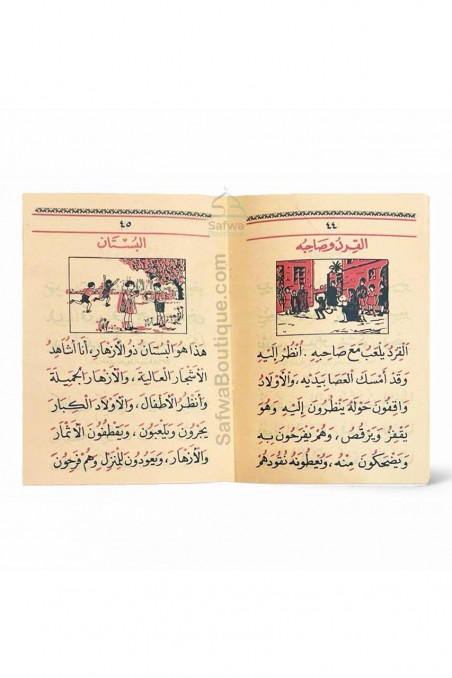 ٤٤
القِرْدُ وَصَاحِبُه
القِرْدُ يَلْعَبُ مَعَ صَاحِبِهِ . اُنْظُرْ إِلَيْهِ
وَقَدْ أَمْسَكَ العَصَا بِيَدَيْهِ، وَالأَوْلَادُ
وَاقِفُونَ حَوْلَهُ يَنْظُرُونَ إِلَيْهِ وَهُوَ
يَقْفِزُ وَيَرْقُصُ ، وَهُمْ يَفْرَحُونَ بِهِ
وَيَضْحَكُونَ مِنْهُ ، وَيُعْطُونَهُ نُقُودَهُمْ
٤٥
البُسْتَان
هٰذَا هُوَ البُسْتَانُ ذُو الأَزْهَارِ، أَنَا أُشَاهِدُ
الأَشْجَارَ العَالِيَةَ ، وَالأَزْهَارَ الجَمِيلَةَ
وَأَنْظُرُ الأَطْفَالَ ، وَالأَوْلَادَ الكِبَارَ
يَجْرُونَ وَيَلْعَبُونَ ، وَيَقْطِفُونَ الأَثْمَارَ
وَالأَزْهَارَ ، وَيَعُودُونَ لِلْمَنْزِلِ وَهُمْ فَرِحُونَ
Safwa
SafwaBoutique.com